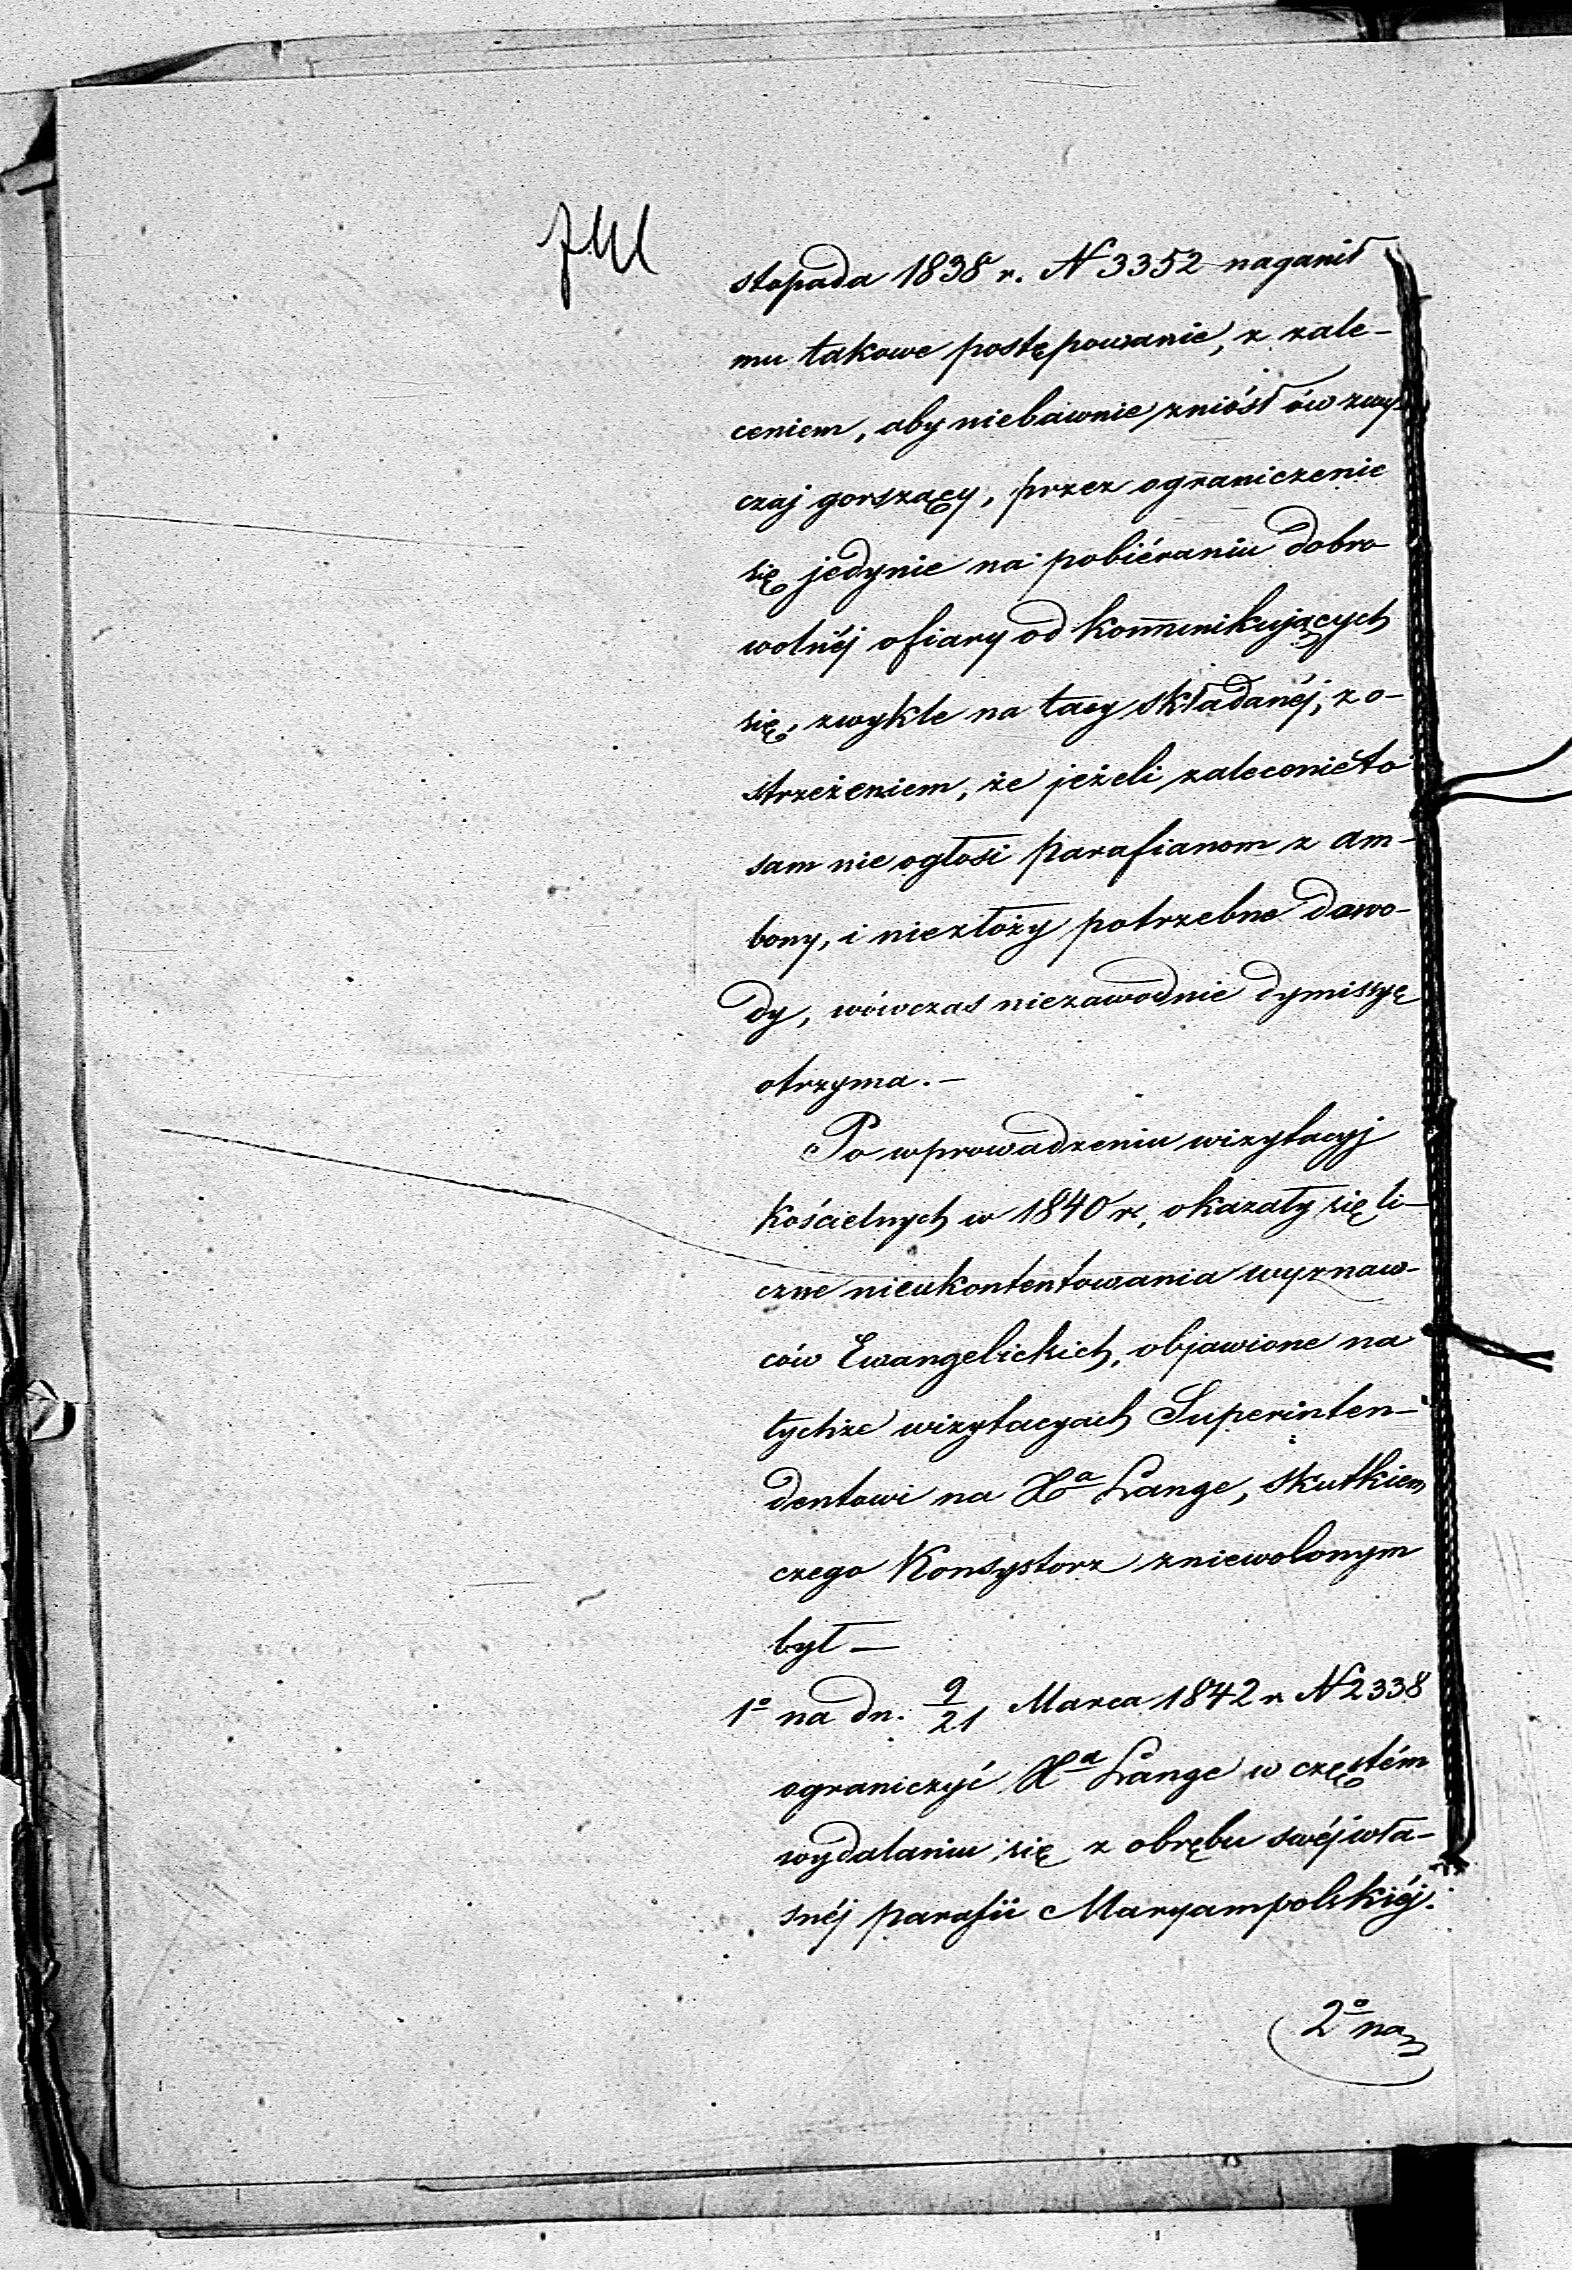 stopada 1838 r. N 3352 naganił
mu takowe postępowanie, z zale-
ceniem, aby niebawnie zniósł ów zwy-
czaj gorszący, przez ograniczenie
się jedynie na pobiéraniu dobro
wolnéj ofiary od kom̄unikujących
się, zwykle na tacy składanéj, z o-
strzeżeniem, że jeżeli zalecenie to
sam nie ogłosi parafianom z am-
bony, i niezłoży potrzebne dowo-
dy, wówczas niezawodnie dymissyę
otrzyma. —
Po wprowadzeniu wizytacyj
Kościelnych w 1840 r. okazały się li-
czne nieukontentowania wyznaw-
ców Ewangelickich, objawione na
tychże wizytacyach Superinten-
dentowi na Xa Lange, skutkiem
czego Konsystorz zniewolonym
był —
1o na dn. 9/21 Marca 1842 r. N 2338
ograniczyć Xa Lange w częstém
wydalaniu się z obrębu swéj wła-
snéj parafii Maryampolskiéj.
2o na